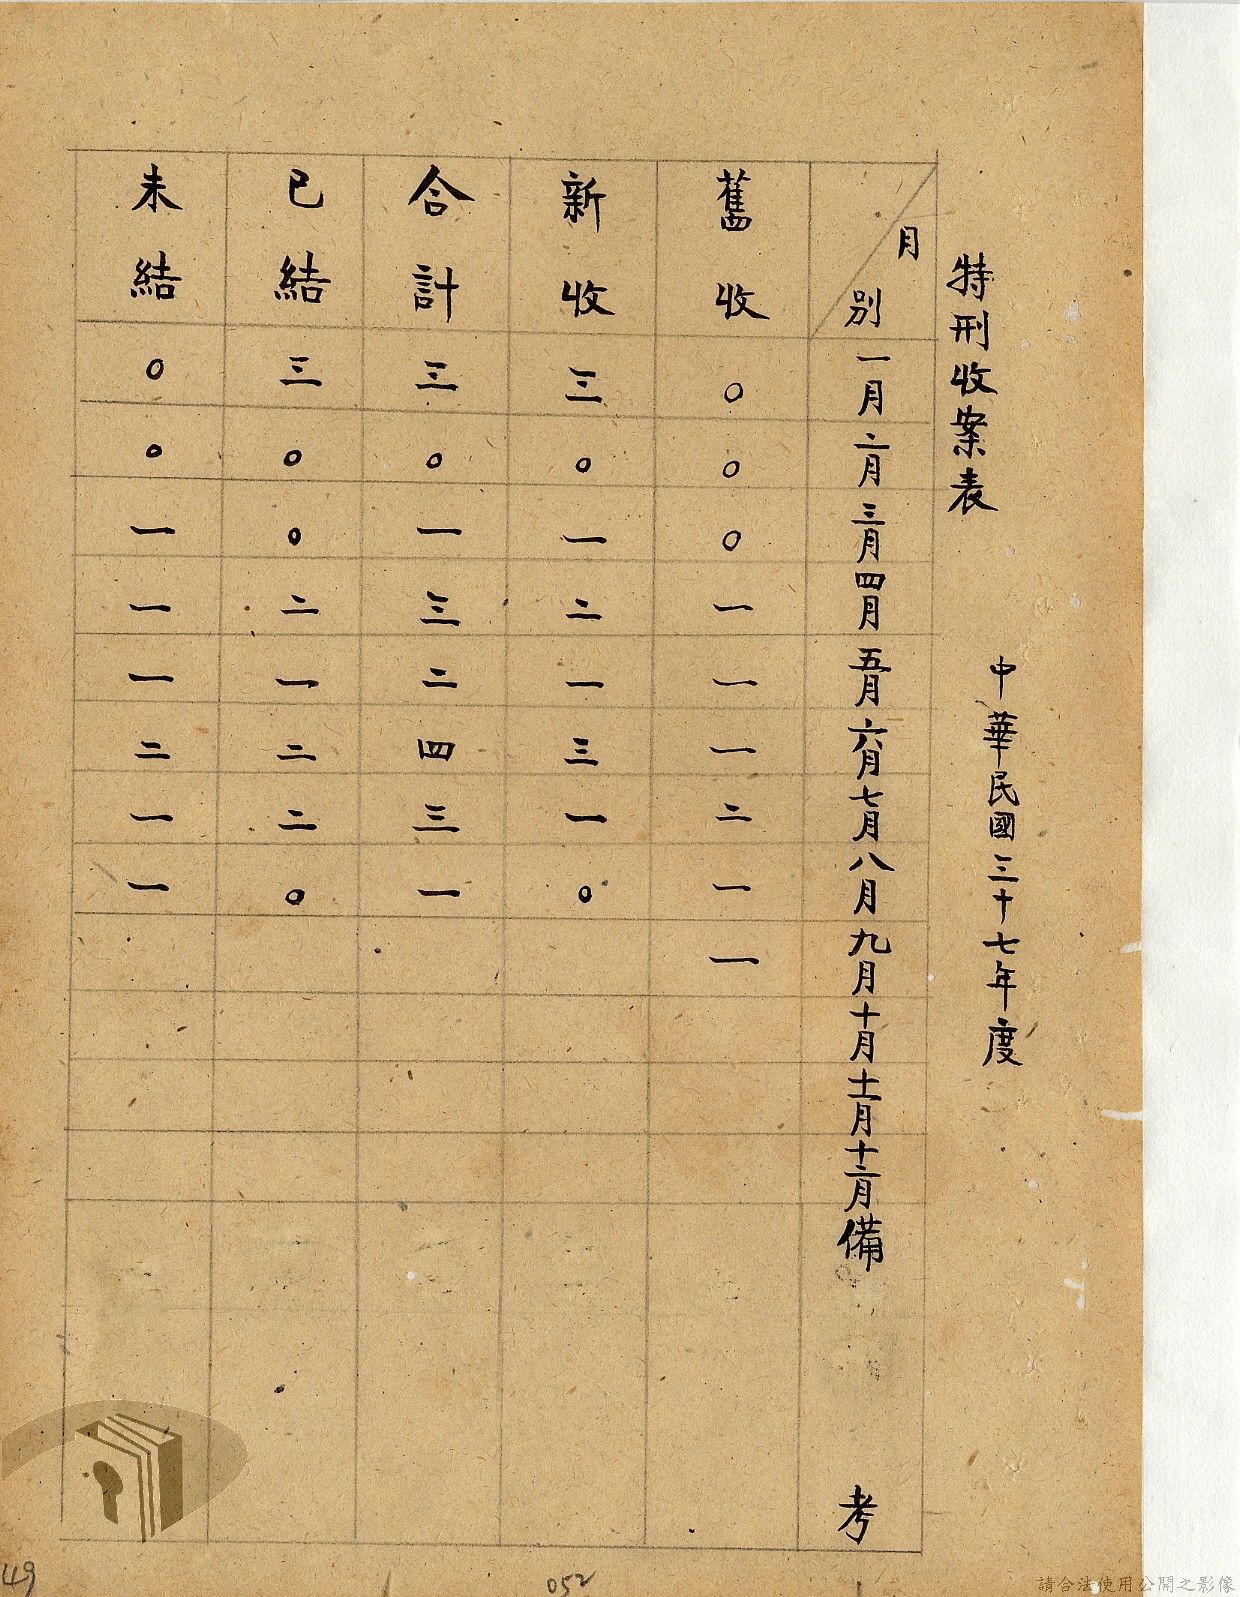 特刑收案表
中華民國三十七年度
月別 一月 二月 三月 四月 五月 六月 七月 八月 九月 十月 十一月 十二月 備考
舊收 ○ ○ ○ 一 一 一 二 一 一
新收 三 ○ 一 二 一 三 一 ○
合計 三 ○ 一 三 二 四 三 一
已結 三 ○ ○ 二 一 二 二 ○
未結 ○ ○ 一 一 一 二 一 一
49
052
請合法使用公開之影像